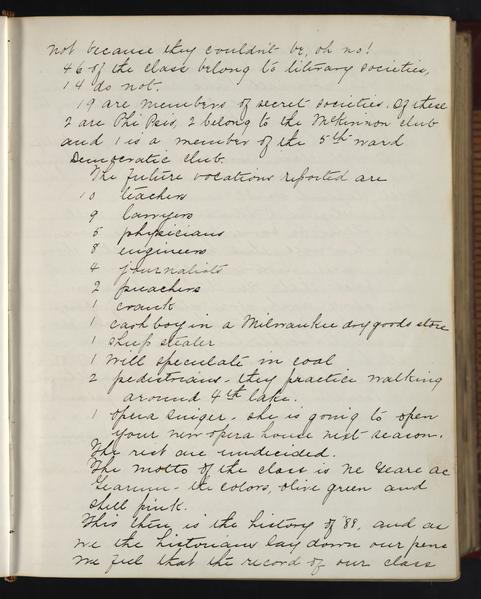 not because they couldn't be, oh no!
46 of the class belong to literary societies,
14 do not.
19 are members of secret societies. Of these
2 are Phi Psis, 2 belong to the McKinnon club
and 1 is a member of the 5th ward
Democratic club.
The future vocations reported are
10 teachers
9 lawyers
5 physicians
8 engineers
4 journalists
2 preachers
1 crank
1 cash boy in a Milwaukee dry goods store
1 sheep stealer
1 will speculate in coal
2 pedestrians - they practice walking
around 4th lake.
1 opera singer - she is going to open
your new opera house next season.
The rest are undecided.
The motto of the class is
- the colors, olive green and
shell pink.
This then is the history of '88, and as
we the historians lay down our pens
we feel that the record of our class